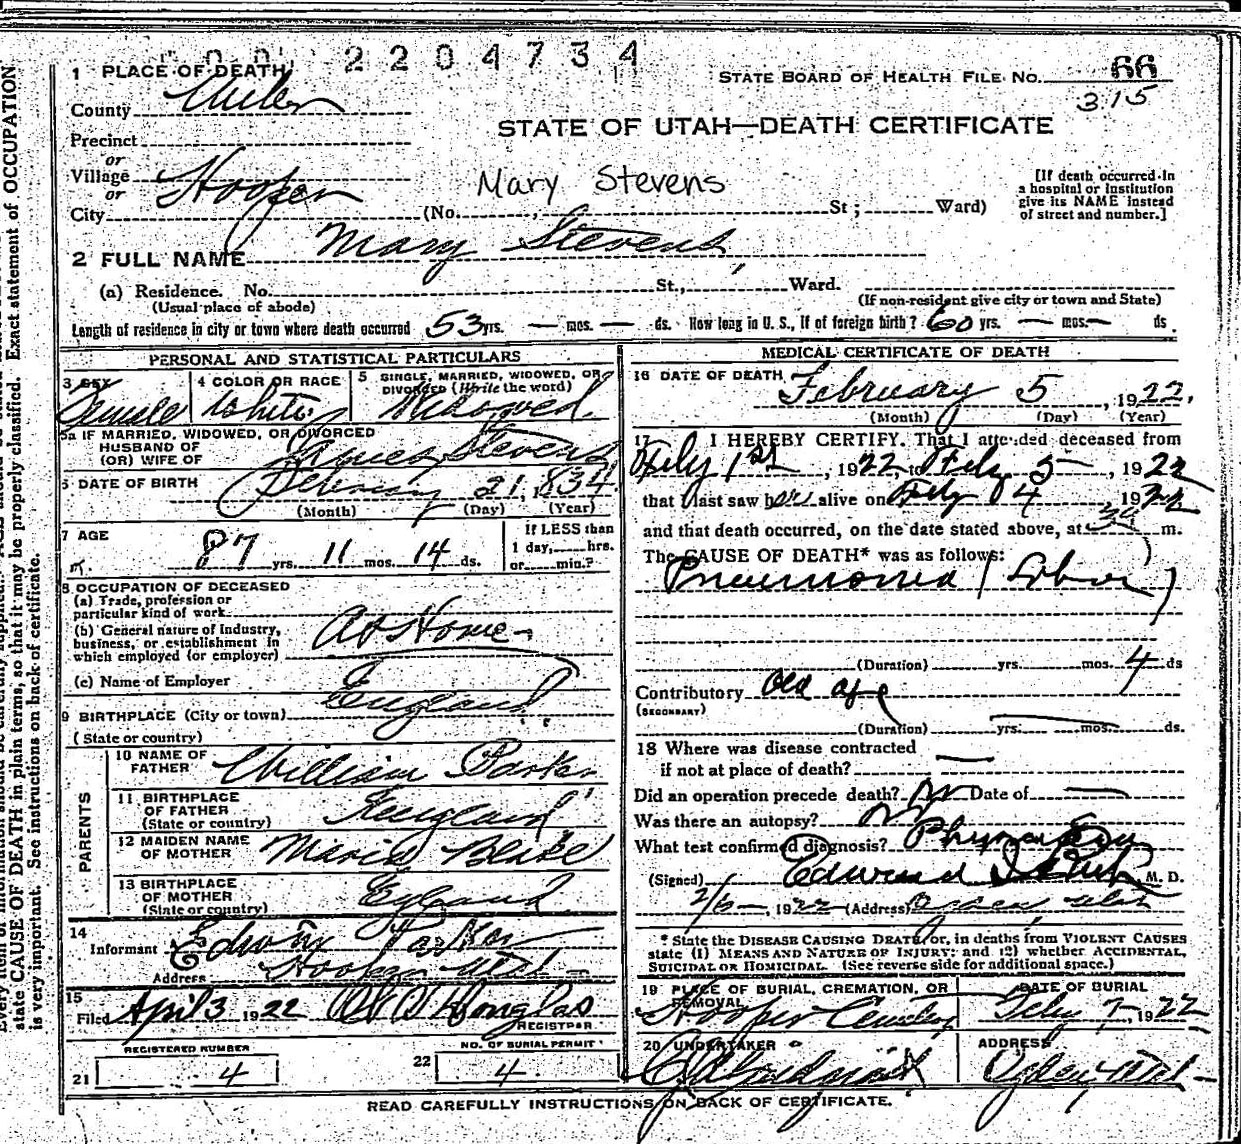 00 2204734
1 PLACE OF DEATH
STATE BOARD OF HEALTH FILE NO. 66
315
County
STATE OF UTAH—DEATH CERTIFICATE
Precinct
or
Village Hooper
or
City
Mary Stevens
(No. , St; Ward)
[If death occurred in
a hospital or institution
give its NAME instead
of street and number.]
2 FULL NAME Mary Stevens
(a) Residence. No. St., Ward.
(Usual place of abode)
(If non-resident give city or town and State)
Length of residence in city or town where death occurred 53 yrs. — mos. — ds. How long in U. S., if of foreign birth? 60 yrs. — mos. — ds.
PERSONAL AND STATISTICAL PARTICULARS
3 SEX Female
4 COLOR OR RACE White
5 SINGLE, MARRIED, WIDOWED, OR
DIVORCED (Write the word) Widowed
5a IF MARRIED, WIDOWED, OR DIVORCED
HUSBAND OF
(OR) WIFE OF James Stevens
6 DATE OF BIRTH February 21, 834
(Month) (Day) (Year)
7 AGE 87 yrs. 11 mos. 14 ds.
If LESS than
1 day, hrs.
or min.?
8 OCCUPATION OF DECEASED
(a) Trade, profession or
particular kind of work
(b) General nature of Industry,
business, or establishment in
which employed (or employer) At Home
(c) Name of Employer
9 BIRTHPLACE (City or town) England
(State or country)
PARENTS
10 NAME OF
FATHER William Parker
11 BIRTHPLACE
OF FATHER England
(State or country)
12 MAIDEN NAME
OF MOTHER Maria Blake
13 BIRTHPLACE
OF MOTHER England
(State or country)
14
Informant Edwin Parker
Address Hooper Utah
15
Filed April 3 1922 Douglas
REGISTRAR
REGISTERED NUMBER
21 4
NO. OF BURIAL PERMIT
22 4
MEDICAL CERTIFICATE OF DEATH
16 DATE OF DEATH February 5, 1922.
(Month) (Day) (Year)
17 I HEREBY CERTIFY. That I attended deceased from
Feby 1st, 1922 to Feby 5, 1922
that I last saw her alive on Feby 4 1922
and that death occurred, on the date stated above, at m.
The CAUSE OF DEATH* was as follows:
Pneumonia (Lobar)
(Duration) yrs. mos. 4 ds
Contributory Old age
(SECONDARY)
(Duration) yrs. mos. ds.
18 Where was disease contracted
if not at place of death? —
Did an operation precede death? No Date of —
Was there an autopsy? No
What test confirmed diagnosis?
(Signed) Edward M. D.
2/6 —, 1922 (Address) Ogden Utah
* State the DISEASE CAUSING DEATH, or, in deaths from VIOLENT CAUSES
state (1) MEANS AND NATURE OF INJURY; and (2) whether ACCIDENTAL,
SUICIDAL OR HOMICIDAL. (See reverse side for additional space.)
19 PLACE OF BURIAL, CREMATION, OR
REMOVAL
Hooper Cemetery
DATE OF BURIAL
Feby 7, 1922
20 UNDERTAKER
ADDRESS
Ogden Utah
READ CAREFULLY INSTRUCTIONS ON BACK OF CERTIFICATE.
state CAUSE OF DEATH in plain terms, so that it may be properly classified. Exact statement of OCCUPATION
is very important. See instructions on back of certificate.